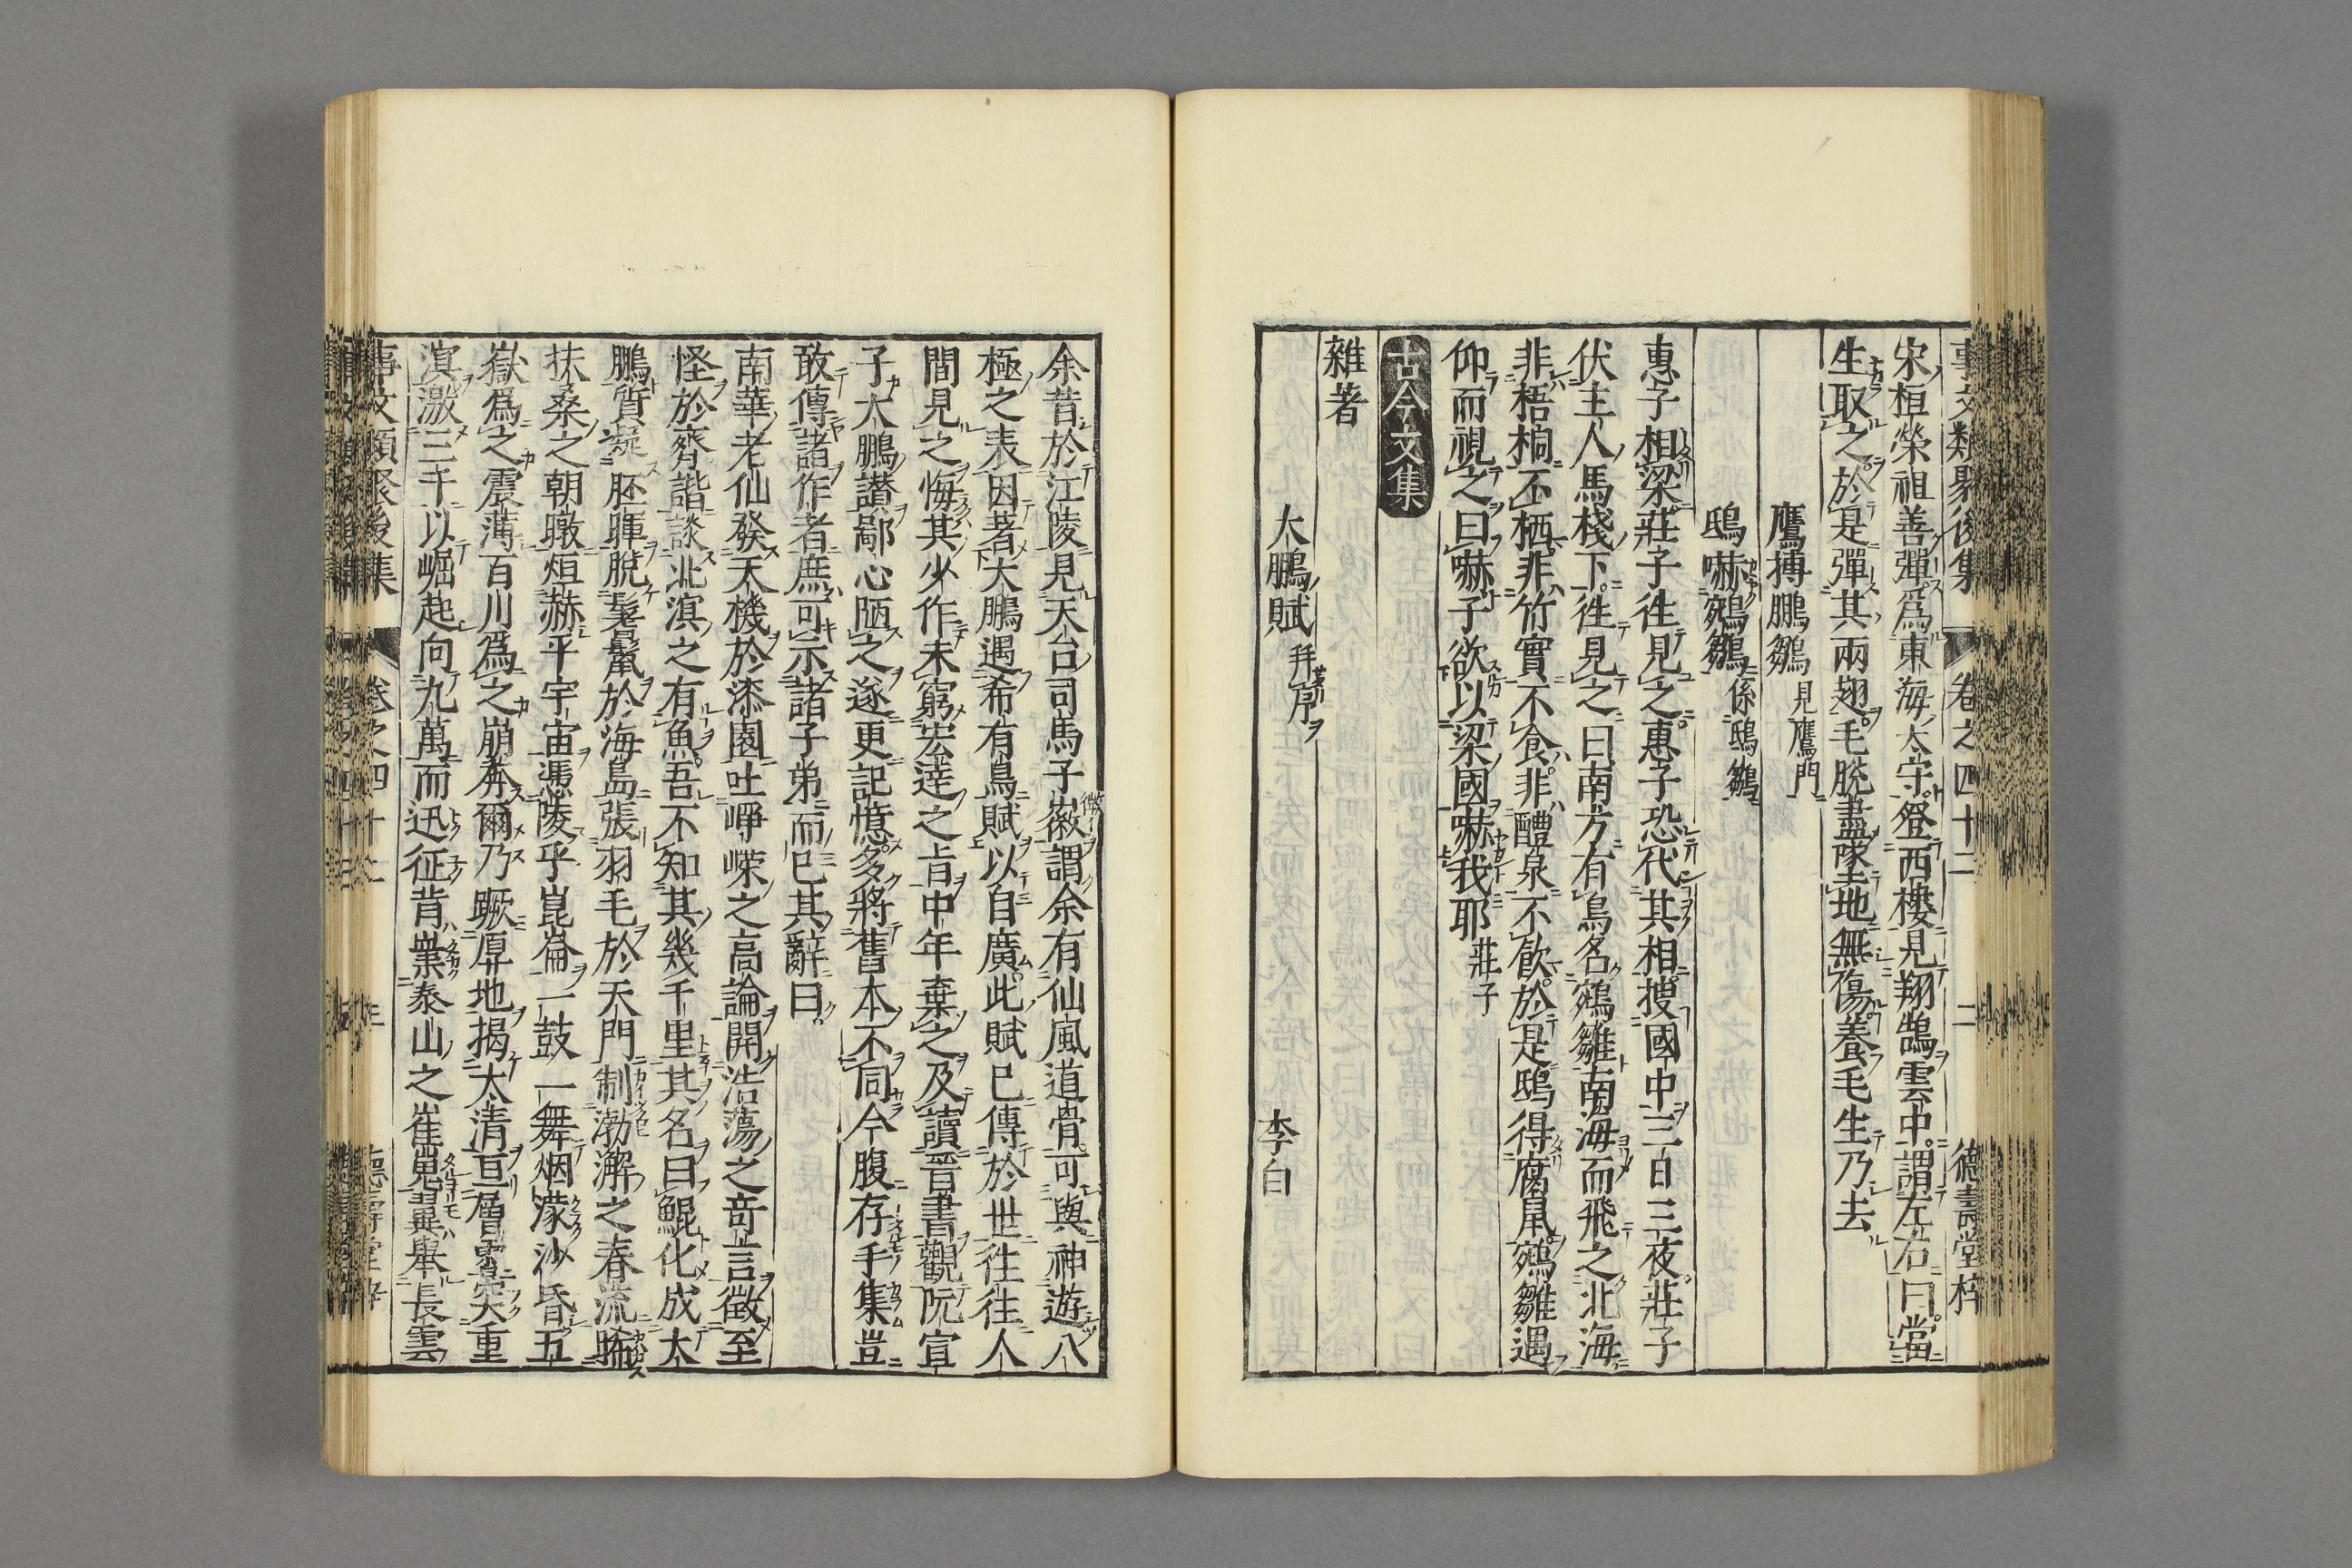 事文類聚後集 卷之四十二 二 德壽堂梓
宋桓榮祖善彈爲東海太守登西樓見翔鵠雲中謂左右曰當
生取之於是彈其兩翅毛脫盡墜地無傷養毛生乃去
鷹搏鵬雛 見鷹門
鴟嚇鵷鶵 係鴟鶵
惠子相梁莊子徃見之惠子恐代其相搜國中三日三夜莊子
伏主人馬棧下徃見之曰南方有鳥名鵷雛南海而飛之北海
非梧桐不栖非竹實不食非醴泉不飲於是鴟得腐鼠鵷雛過
仰而視之曰嚇子欲以梁國嚇我耶 莊子
古今文集
雜著
大鵬賦 并序 李白
余昔於江陵見天台司馬子微謂余有仙風道骨可與神遊八
極之表因著大鵬遇希有鳥賦以自廣此賦已傳於世徃徃人
間見之悔其少作未窮宏達之旨中年棄之及讀晉書觀阮宣
子大鵬讃鄙心陋之遂更記憶多將舊本不同今腹存手集豈
敢傳諸作者庶可示諸子弟而已其辭曰
南華老仙發天機於漆園吐崢嶸之高論開浩蕩之奇言徵至
怪於齊諧談北溟之有魚吾不知其幾千里其名曰鯤化成大
鵬質凝胚暉脫鬐鬣於海島張羽毛於天門刷渤澥之春流晞
扶桑之朝暾烜赫乎宇宙憑陵乎崑崙一鼓一舞烟濛沙昏五
嶽爲之震薄百川爲之崩奔爾乃蹶厚地揭太清亘層霄突重
溟激三千以崛起向九萬而迅征背嶪泰山之崔嵬翼舉長雲
事文類聚後集 卷之四十二 三 德壽堂梓